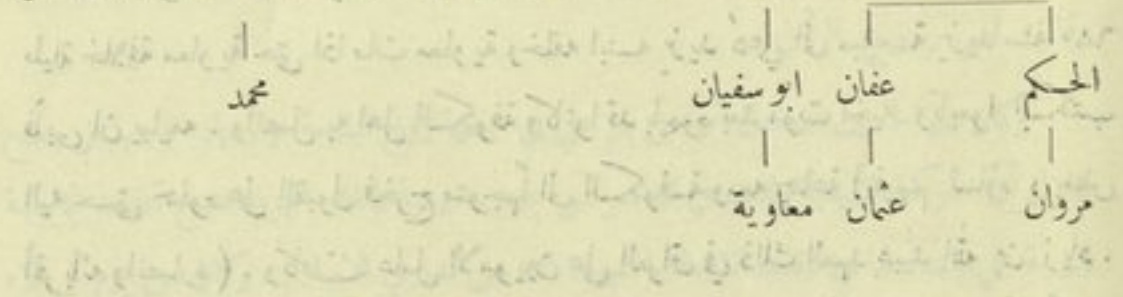 الحكم عفان ابو سفيان محمد
مروان عثمان معاوية